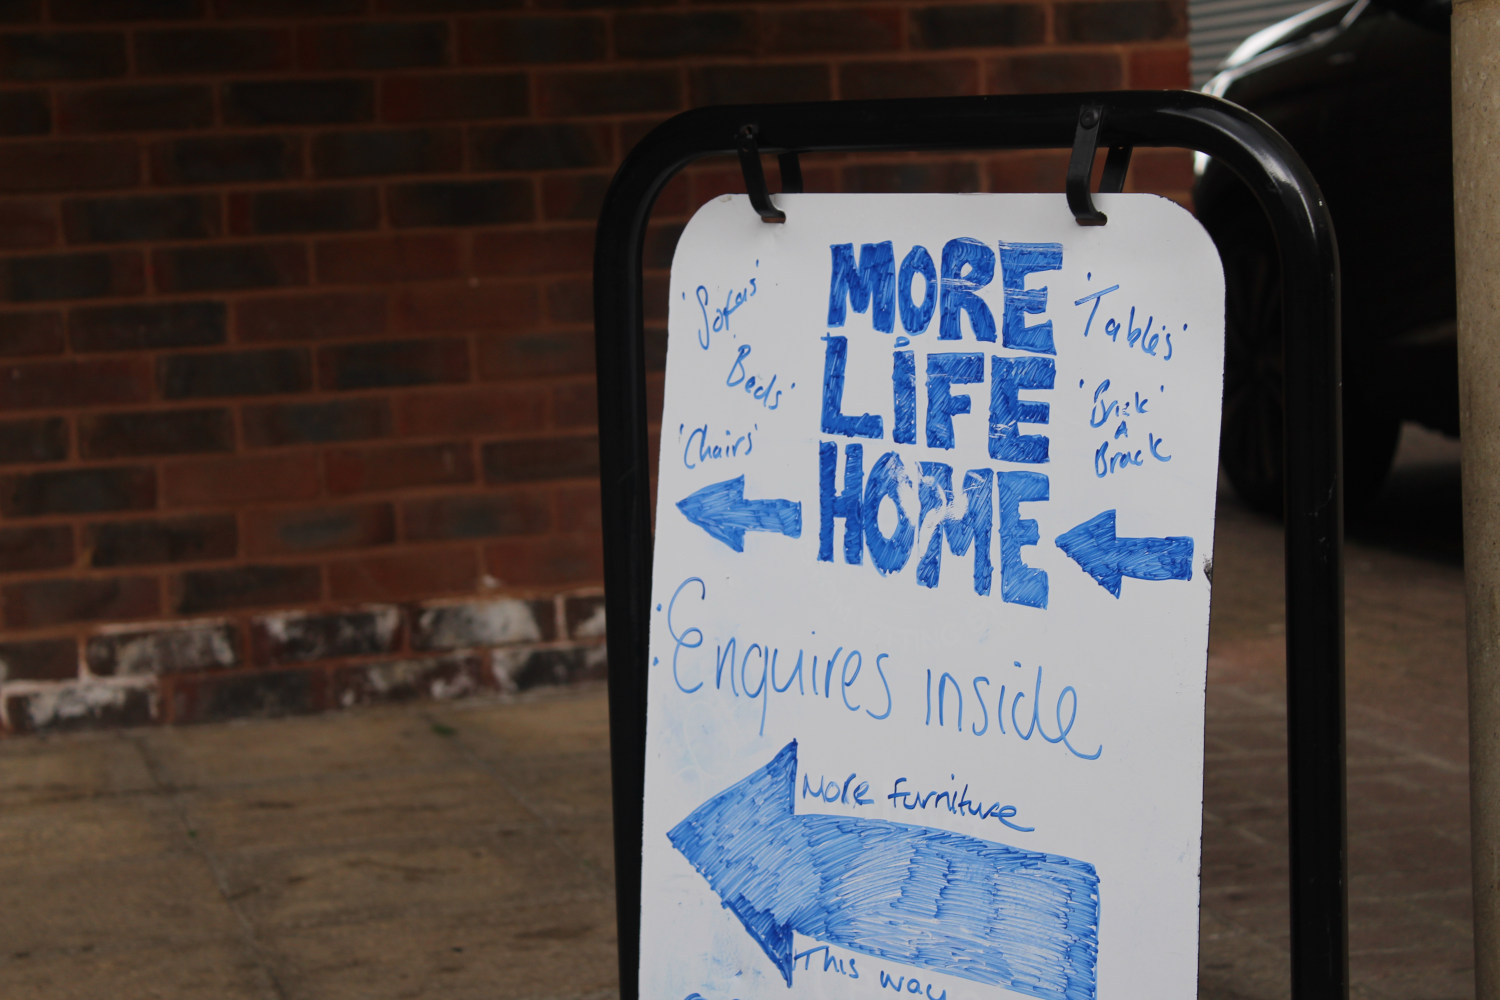 MORE
LIFE
HOME
'Sofas'
Beds'
'Chairs'
'Tables'
'Brick'
A
Brack
Enquires inside
More furniture
This way